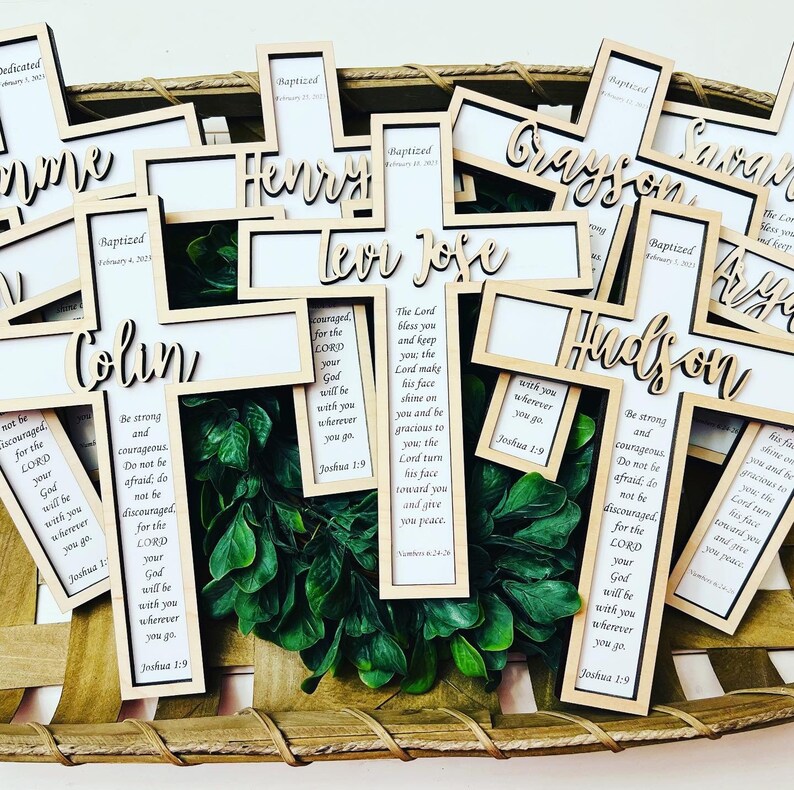 Dedicated
February 5, 2023
mme
Baptized
February 25, 2023
Henry
discouraged,
for the
LORD
your
God
will be
with you
wherever
you go.
Joshua 1:9
Baptized
February 12, 2023
Grayson
with you
wherever
you go.
Joshua 1:9
Savan
Arya
shine on
you and be
gracious to
you; the
Lord turn
his face
toward you
and give
you peace.
Numbers 6:24-26
not be
discouraged,
for the
LORD
your
God
will be
with you
wherever
you go.
Joshua 1:9
Baptized
February 4, 2023
Colin
Be strong
and
courageous.
Do not be
afraid; do
not be
discouraged,
for the
LORD
your
God
will be
with you
wherever
you go.
Joshua 1:9
Baptized
February 18, 2023
Levi Jose
The Lord
bless you
and keep
you; the
Lord make
his face
shine on
you and be
gracious to
you; the
Lord turn
his face
toward you
and give
you peace.
Numbers 6:24-26
Baptized
February 5, 2023
Hudson
Be strong
and
courageous.
Do not be
afraid; do
not be
discouraged,
for the
LORD
your
God
will be
with you
wherever
you go.
Joshua 1:9